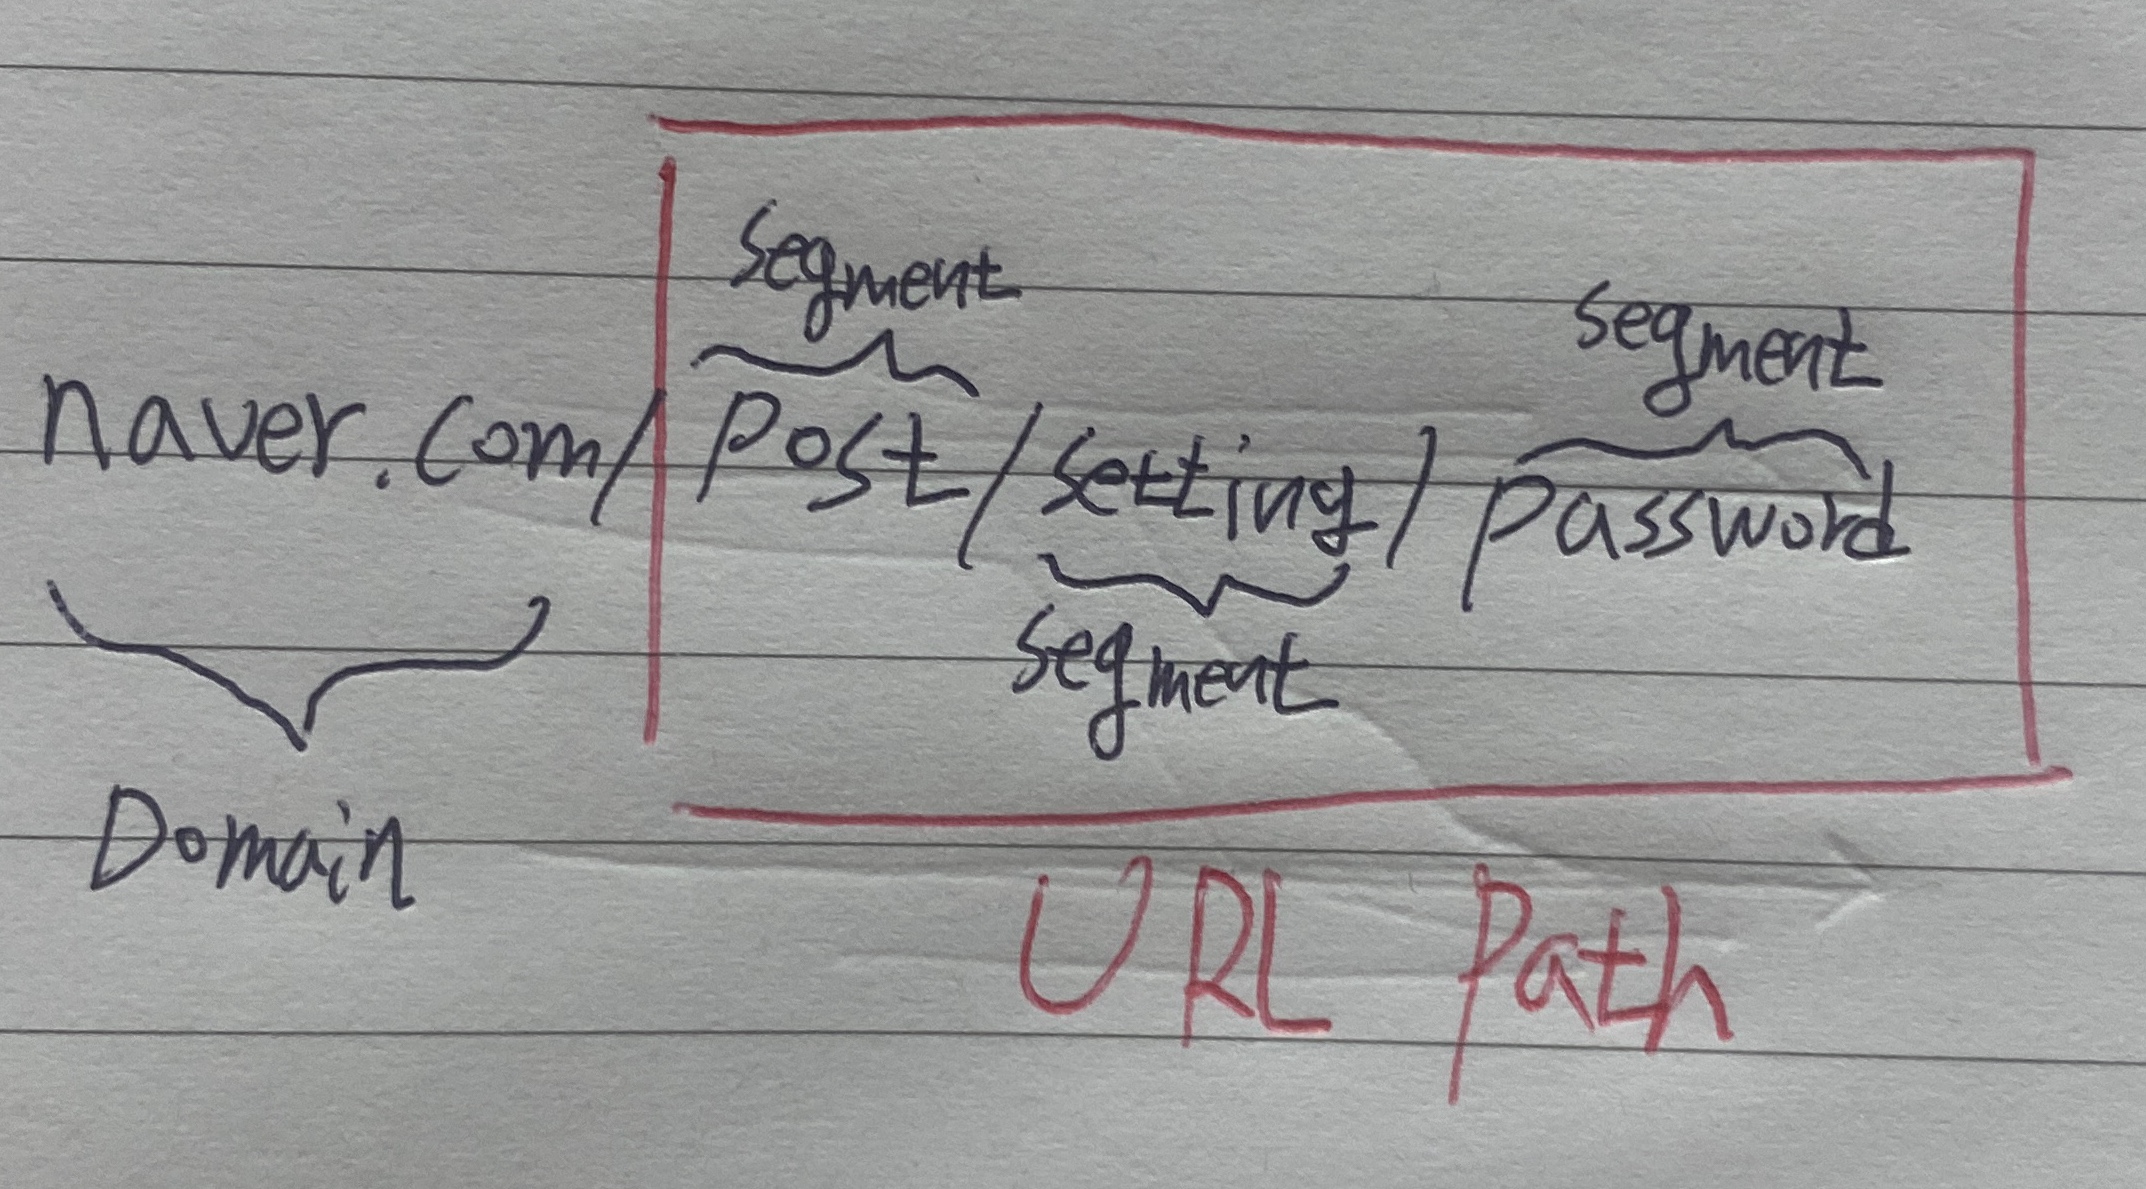 segment
segment
naver.com/post/setting/password
segment
Domain
URL Path